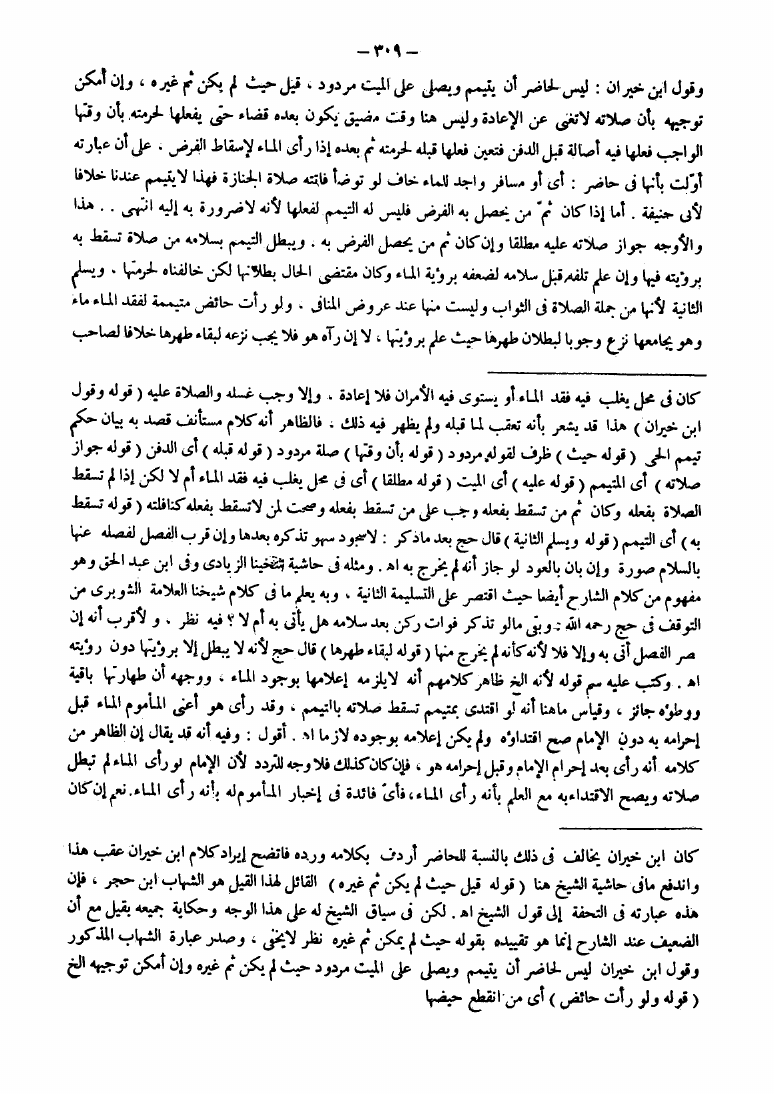 – ٣٠٩ –
وقول ابن خيران : ليس لحاضر أن يتيمم ويصلى على الميت مردود ، قيل حيث لم يكن ثم غيره ، وإن أمكن
توجيهه بأن صلاته لاتغنى عن الإعادة وليس هنا وقت مضيق يكون بعده قضاء حتى يفعلها لحرمته بأن وقتها
الواجب فعلها فيه أصالة قبل الدفن فتعين فعلها قبله لحرمته ثم بعده إذا رأى الماء لإسقاط الفرض ، على أن عبارته
أوّلت بأنها فى حاضر : أى أو مسافر واجد للماء خاف لو توضأ فاتته صلاة الجنازة فهذا لايتيمم عندنا خلافا
لأبى حنيفة . أما إذا كان ثمّ من يحصل به الفرض فليس له التيمم لفعلها لأنه لاضرورة به إليه انتهى . . هذا
والأوجه جواز صلاته عليه مطلقا وإن كان ثم من يحصل الفرض به . ويبطل التيمم بسلامه من صلاة تسقط به
برؤيته فيها وإن علم تلفه قبل سلامه لضعفه برؤية الماء وكان مقتضى الحال بطلانها لكن خالفناه لحرمتها ، ويسلم
الثانية لأنها من جملة الصلاة فى الثواب وليست منها عند عروض المنافى ، ولو رأت حائض متيممة لفقد الماء ماء
وهو يجامعها نزع وجوبا لبطلان طهرها حيث علم برؤيتها ، لا إن رآه هو فلا يجب نزعه لبقاء طهرها خلافا لصاحب
كان فى محل يغلب فيه فقد الماء أو يستوى فيه الأمران فلا إعادة ، وإلا وجب غسله والصلاة عليه ( قوله وقول
ابن خيران ) هذا قد يشعر بأنه تعقب لما قبله ولم يظهر فيه ذلك ، فالظاهر أنه كلام مستأنف قصد به بيان حكم
تيمم الحى ( قوله حيث ) ظرف لقوله مردود ( قوله بأن وقتها ) صلة مردود ( قوله قبله ) أى الدفن ( قوله جواز
صلاته ) أى المتيمم ( قوله عليه ) أى الميت ( قوله مطلقا ) أى فى محل يغلب فيه فقد الماء أم لا لكن إذا لم تسقط
الصلاة بفعله وكان ثم من تسقط بفعله وجب على من تسقط بفعله وصحت لمن لاتسقط بفعله كنافلته ( قوله تسقط
به ) أى التيمم ( قوله ويسلم الثانية ) قال حج بعد ماذكر : لاسجود سهو تذكره بعدها وإن قرب الفصل لفصله عنها
بالسلام صورة وإن بان بالعود لو جاز أنه لم يخرج به اهـ . ومثله فى حاشية شيخنا الزيادى وفى ابن عبد الحق وهو
مفهوم من كلام الشارح أيضا حيث اقتصر على التسليمة الثانية ، وبه يعلم ما فى كلام شيخنا العلامة الشوبرى من
التوقف فى حج رحمه الله : وبقى مالو تذكر فوات ركن بعد سلامه هل يأتى به أم لا ؟ فيه نظر ، و لأقرب أنه إن
صر الفصل أتى به وإلا فلا لأنه كأنه لم يخرج منها ( قوله لبقاء طهرها ) قال حج لأنه لا يبطل إلا برؤيتها دون رؤيته
اهـ . وكتب عليه سم قوله لأنه الخ ظاهر كلامهم أنه لايلزمه إعلامها بوجود الماء ، ووجهه أن طهارتها باقية
ووطؤه جائز ، وقياس ماهنا أنه لو اقتدى بمتيمم تسقط صلاته بالتيمم ، وقد رأى هو أعنى المأموم الماء قبل
إحرامه به دون الإمام صح اقتداؤه ولم يكن إعلامه بوجوده لازما اهـ . أقول : وفيه أنه قد يقال إن الظاهر من
كلامه أنه رأى بعد إحرام الإمام وقبل إحرامه هو ، فإن كان كذلك فلا وجه للتردد لأن الإمام لو رأى الماء لم تبطل
صلاته ويصح الاقتداء به مع العلم بأنه رأى الماء، فأىّ فائدة فى إخبار المأموم له بأنه رأى الماء. نعم إن كان
كان ابن خيران يخالف فى ذلك بالنسبة للحاضر أردف بكلامه ورده فاتضح إيراد كلام ابن خيران عقب هذا
واندفع مافى حاشية الشيخ هنا ( قوله قيل حيث لم يكن ثم غيره ) القائل لهذا القيل هو الشهاب ابن حجر ، فإن
هذه عبارته فى التحفة إلى قول الشيخ اهـ . لكن فى سياق الشيخ له على هذا الوجه وحكاية جميعه بقيل مع أن
الضعيف عند الشارح إنما هو تقييده بقوله حيث لم يمكن ثم غيره نظر لايخفى ، وصدر عبارة الشهاب المذكور
وقول ابن خيران ليس لحاضر أن يتيمم ويصلى على الميت مردود حيث لم يكن ثم غيره وإن أمكن توجيهه الخ
( قوله ولو رأت حائض ) أى من انقطع حيضها